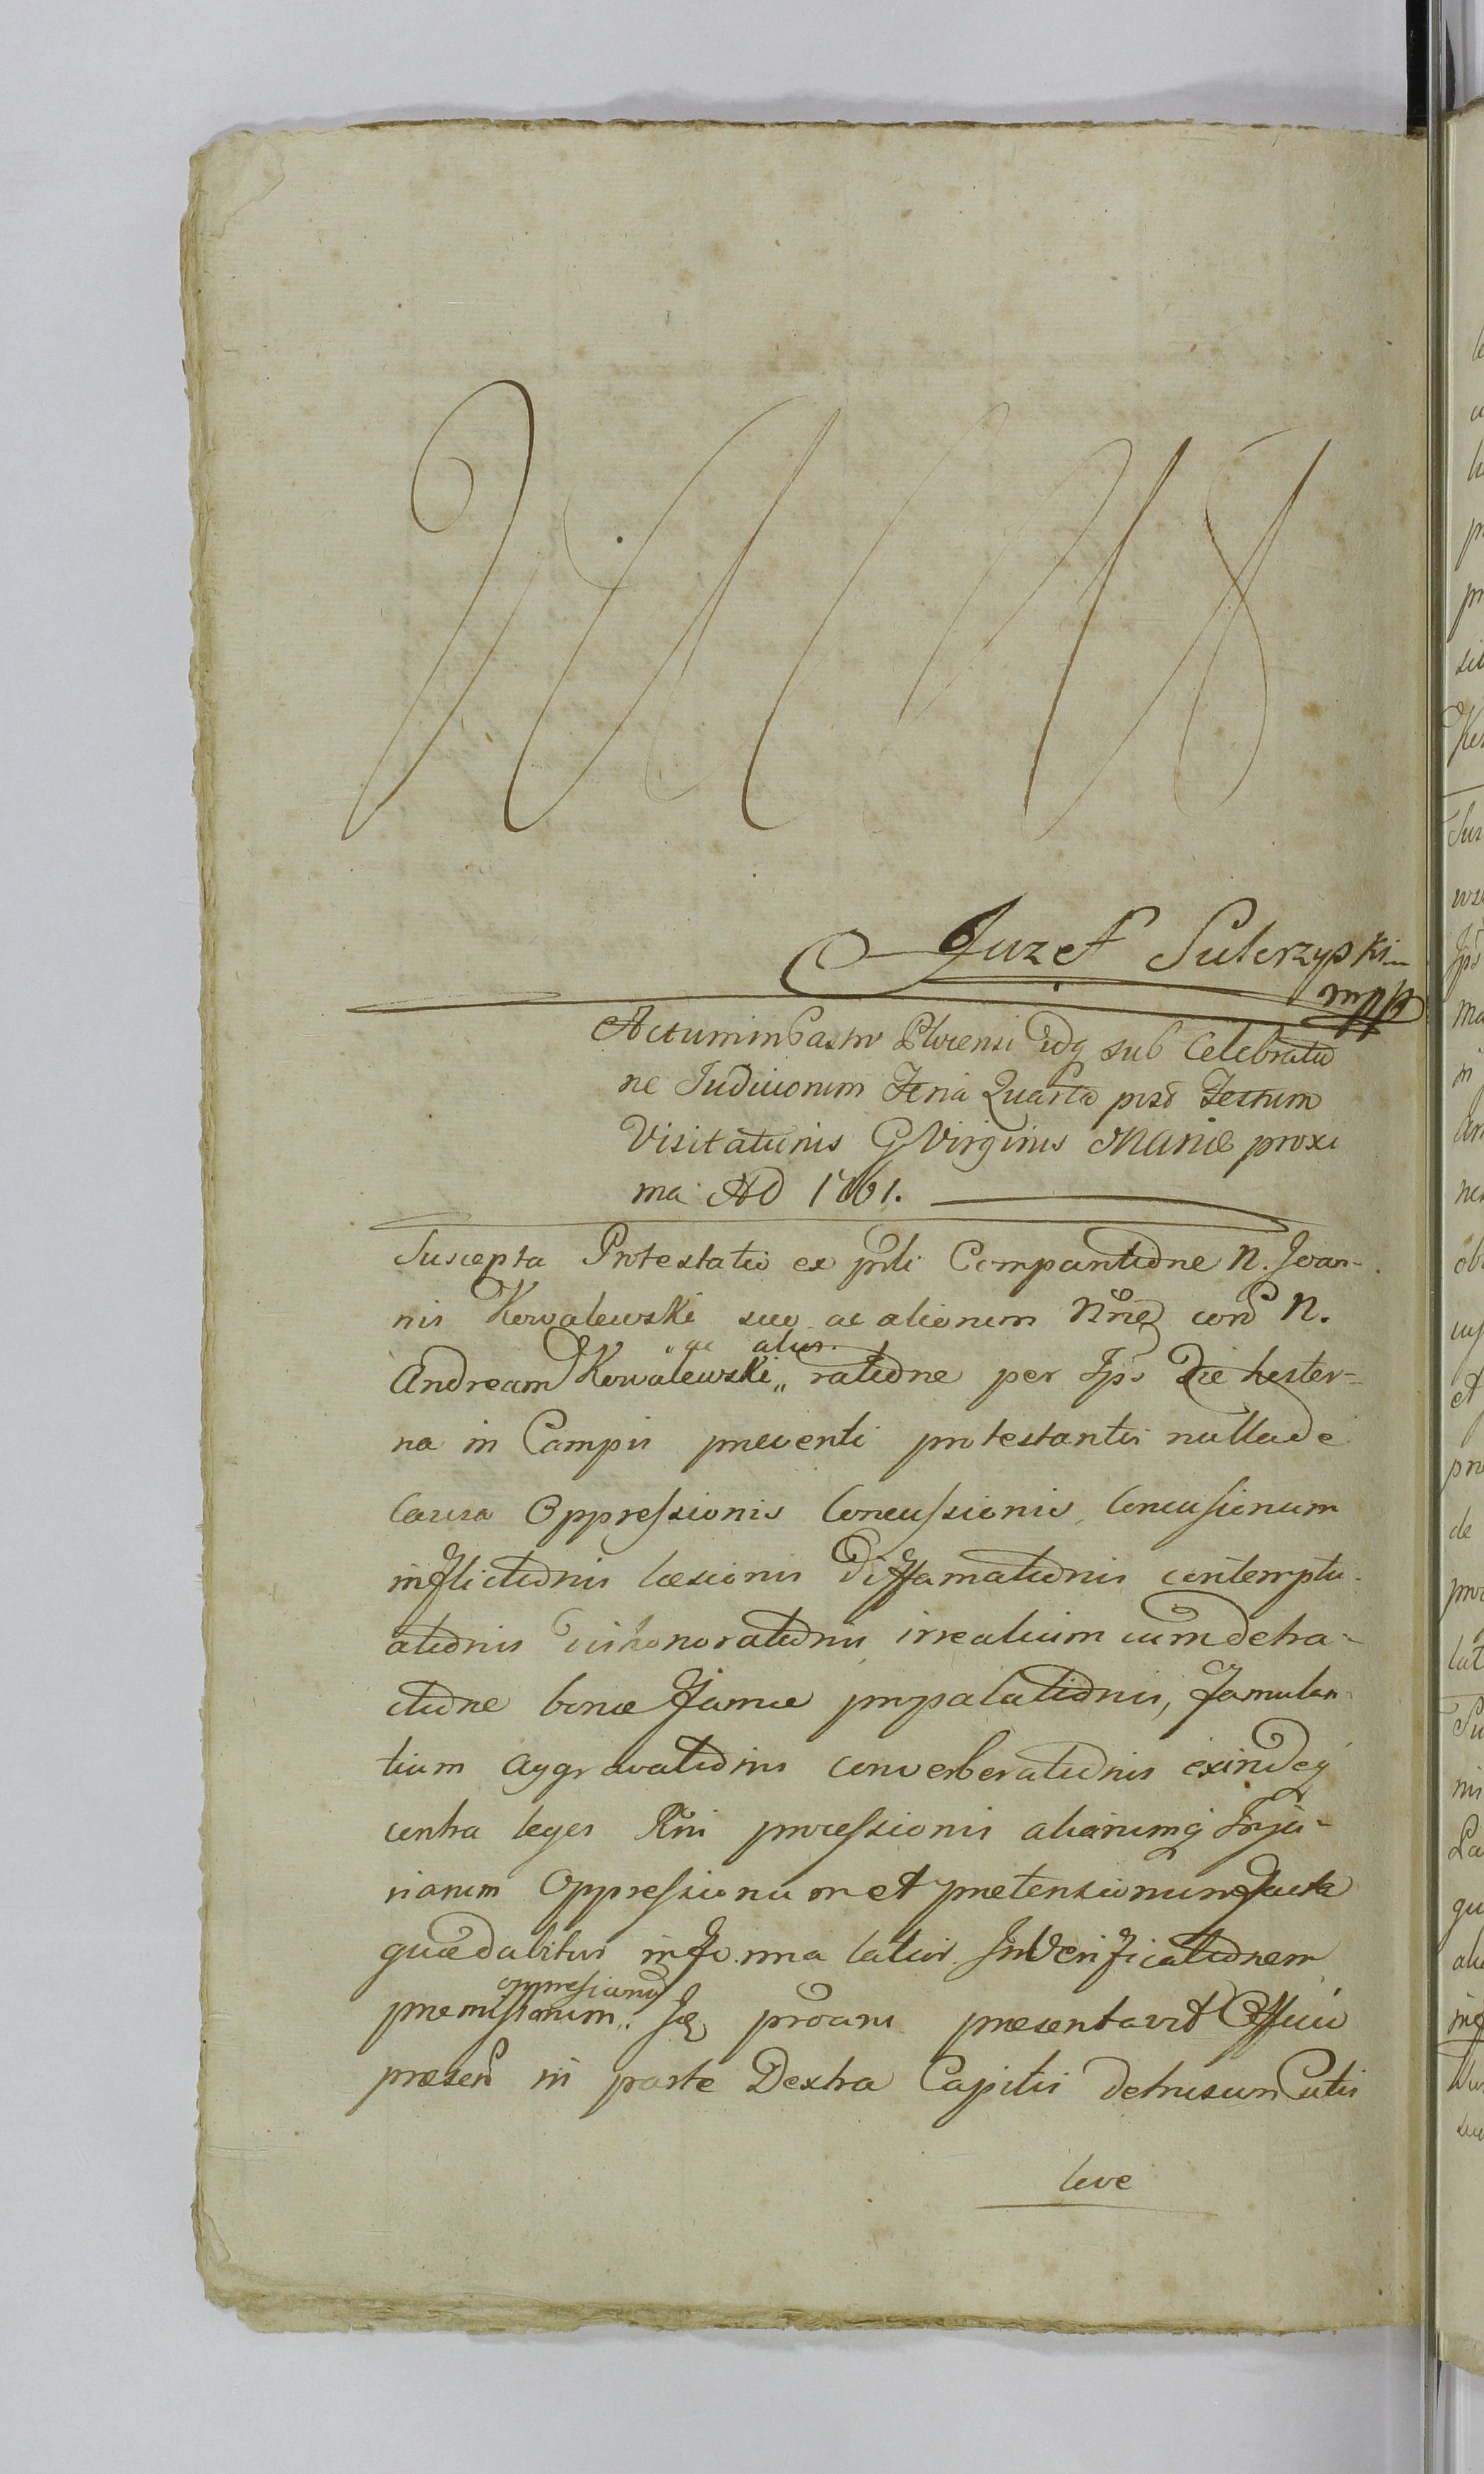 Juzef Sulerzyski
mpp
Actum in Castro Plocensi idq sub Celebratio
ne Judiciorum Feria Quarta post Festum
Visitationis G Virginis Mariæ proxi
ma AD 1761.
Suscepta Protestatio ex prsti Comparitione N. Joan-
nis Kowalewski suo ac aliorum Nõne con̄ N.
Andream Kowalewski „ac alios„ ratione per Jps die hester-
na in Campis preventi protestantis nulla de
causa Oppressionis Concussionis, Concusionum
inflictionis læsionis Diffamationis contemptu
ationis dishonorationis irrealium cum detra-
ctione bonæ famæ propalationis, famulan
tium aggravationis converberationis exindeq
contra leges Rni processionis aliarumq Inju-
riarum Oppressionum et prætensionum Juxta
quæ dabitur in forma latior In Verificationem
premissorum „oppressionū„ Jdē proāns presentavit Officio
præsen̄ in parte Dextra Capitis detrusum Cutis
leve